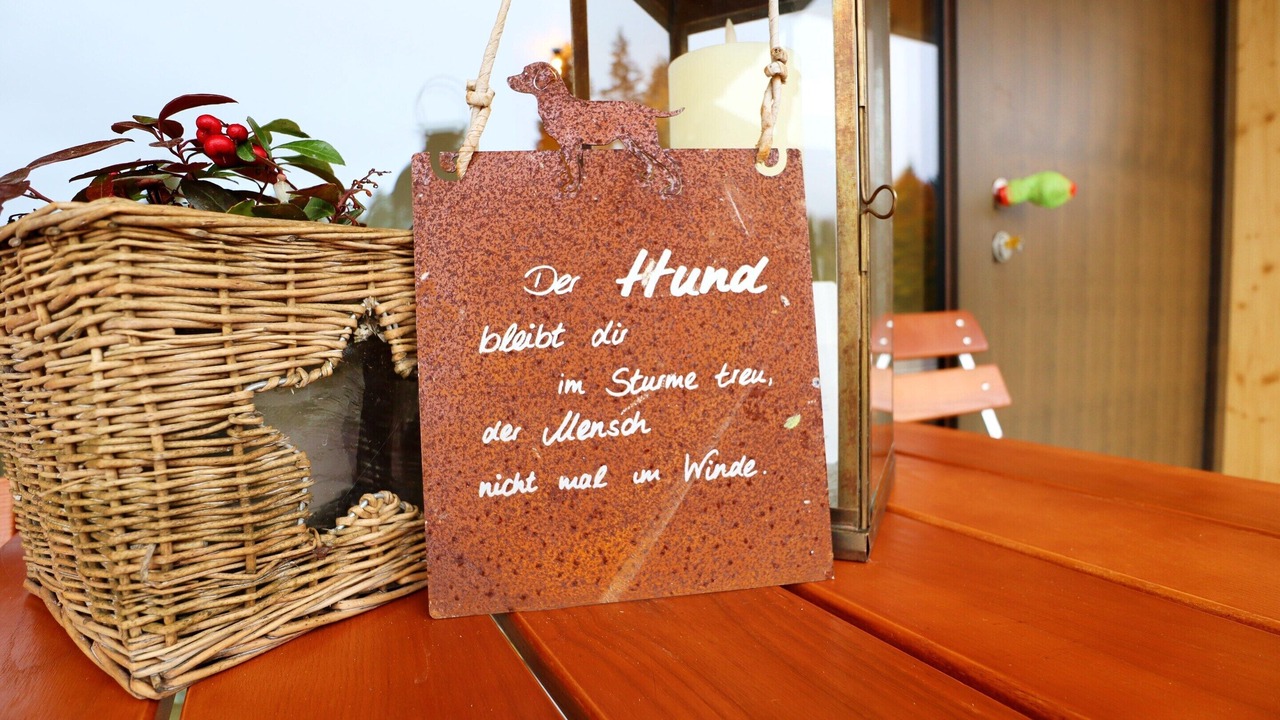 Der Hund
bleibt dir
im Sturme treu,
der Mensch
nicht mal im Winde.